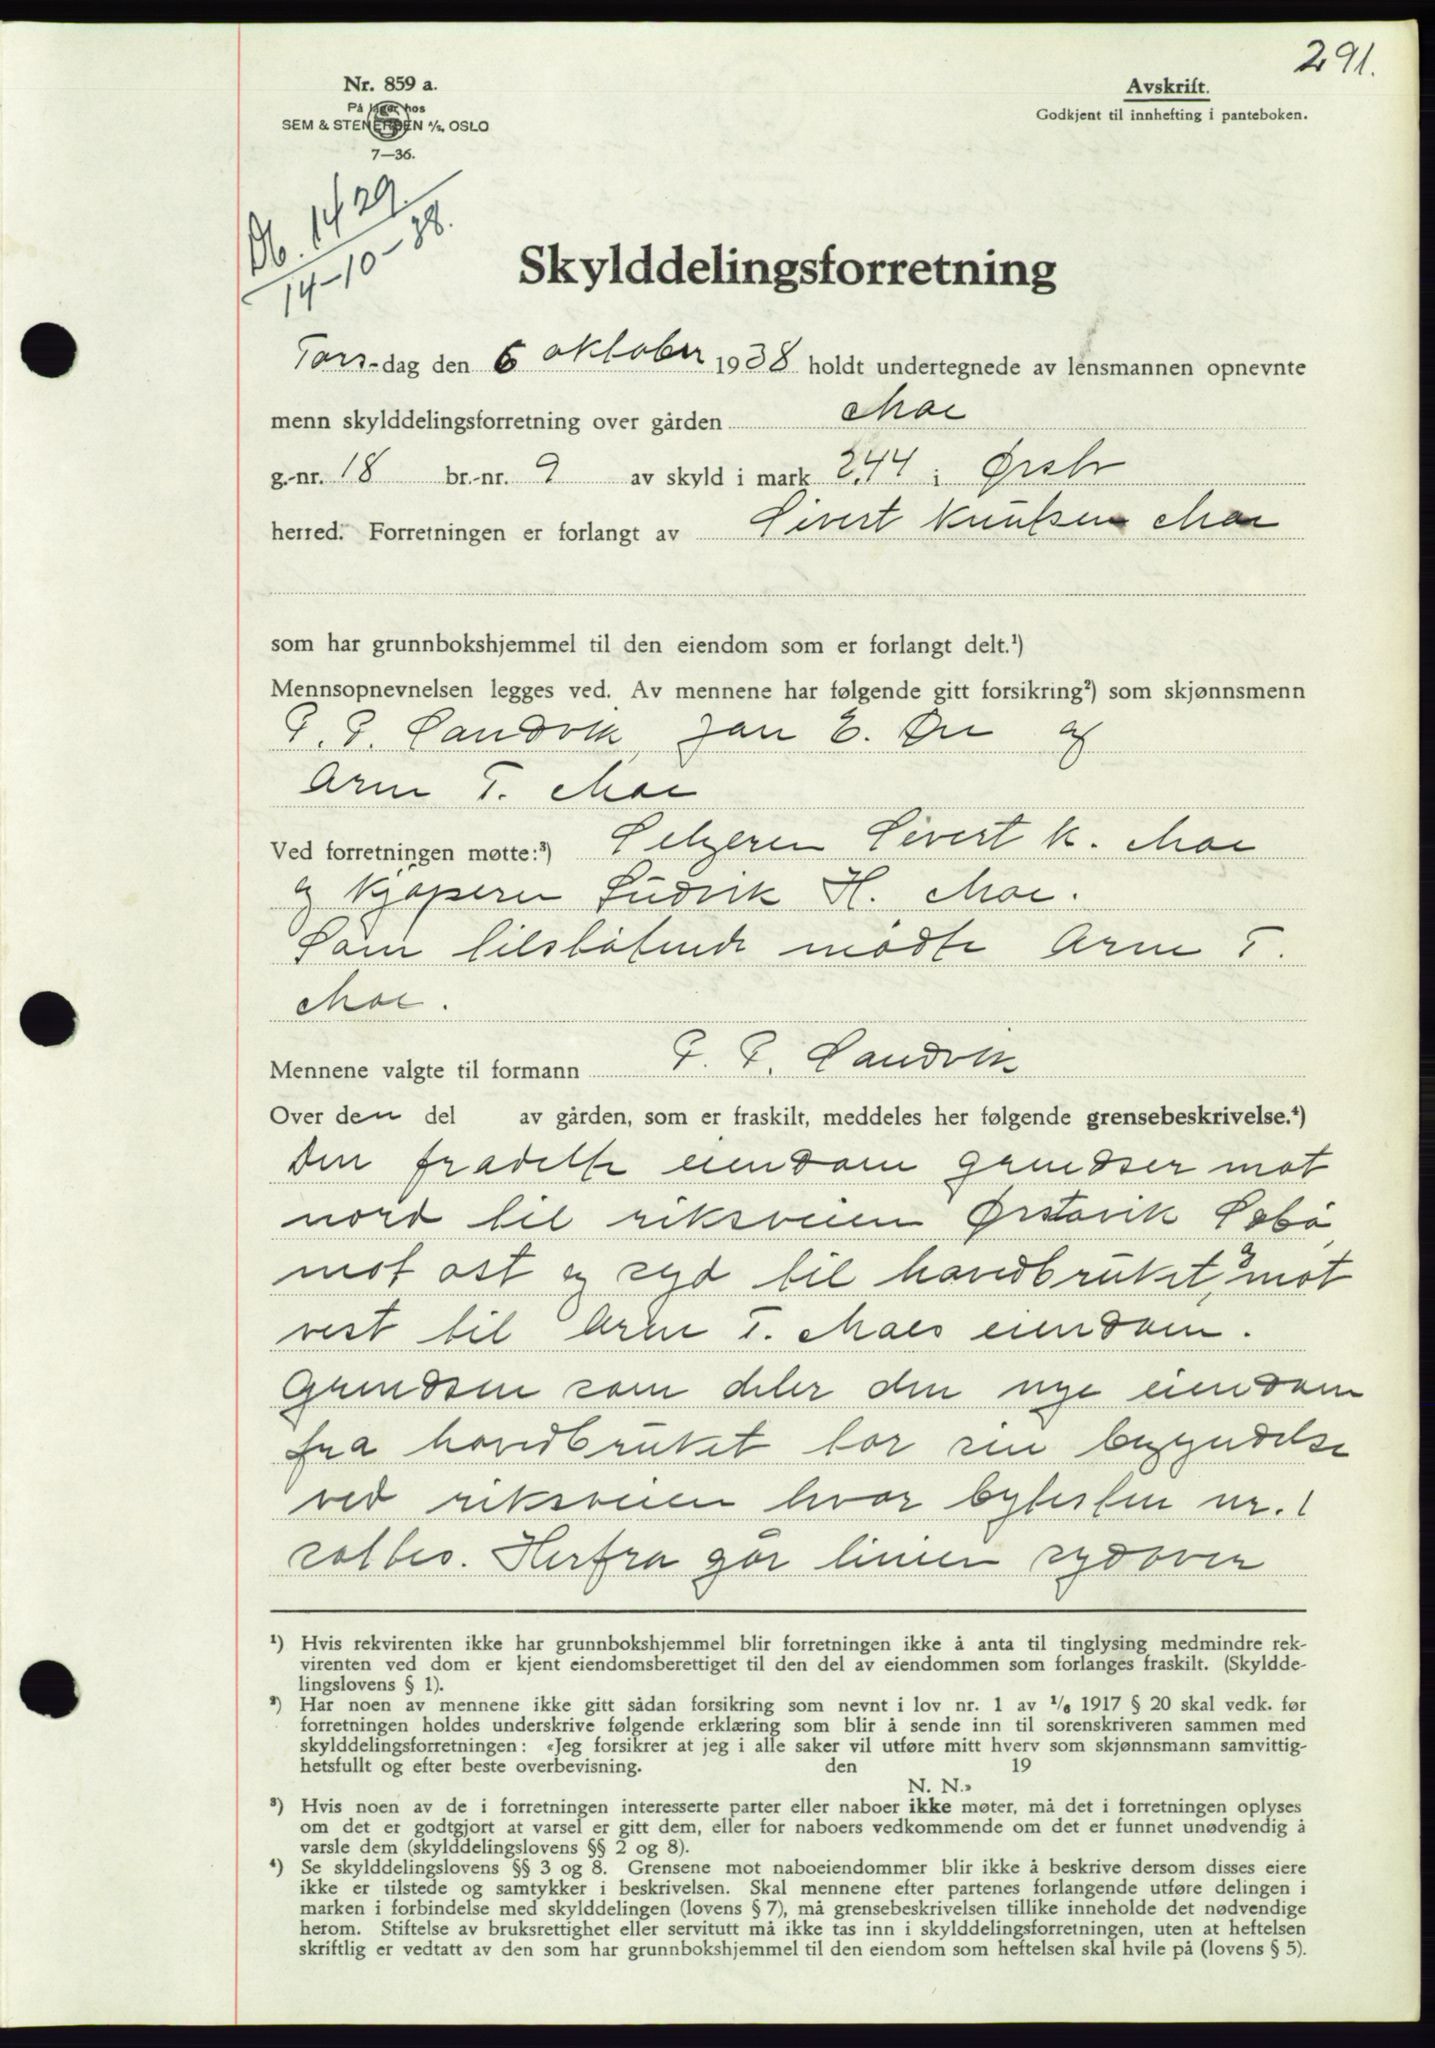 291.
Nr. 859 a.
På lager hos
SEM & STENERSEN A/S, OSLO
7—36.
Avskrift.
Godkjent til innhefting i panteboken.
Db. 1429.
14-10-38.
Skylddelingsforretning
Torsdag den 6 oktober 1938 holdt undertegnede av lensmannen opnevnte
menn skylddelingsforretning over gården Moe
g.-nr. 18 br.-nr. 9 av skyld i mark 2,44 i Ørsta
herred. Forretningen er forlangt av Sivert Knutsen Moe
som har grunnbokshjemmel til den eiendom som er forlangt delt.¹)
Mennsopnevnelsen legges ved. Av mennene har følgende gitt forsikring²) som skjønnsmenn
P. P. Sandvik, Jon E. Øie og
Arne T. Moe
Ved forretningen møtte:³) Selgeren Sivert K. Moe
og kjøperen Ludvik H. Moe.
Som tilstøtende mødte Arne T.
Moe.
Mennene valgte til formann P. P. Sandvik
Over den del av gården, som er fraskilt, meddeles her følgende grensebeskrivelse.⁴)
Den fradelte eiendom grendser mot
nord til riksveien Ørstavik Sæbø,
mot øst og syd til hovedbruket, og mot
vest til Arne T. Moes eiendom.
Grendsen som deler den nye eiendom
fra hovedbruket tar sin begyndelse
ved riksveien hvor bytesten nr. 1
settes. Herfra går linien sydover
¹) Hvis rekvirenten ikke har grunnbokshjemmel blir forretningen ikke å anta til tinglysing medmindre rek-
virenten ved dom er kjent eiendomsberettiget til den del av eiendommen som forlanges fraskilt. (Skyldde-
lingslovens § 1).
²) Har noen av mennene ikke gitt sådan forsikring som nevnt i lov nr. 1 av 1/6 1917 § 20 skal vedk. før
forretningen holdes underskrive følgende erklæring som blir å sende inn til sorenskriveren sammen med
skylddelingsforretningen: «Jeg forsikrer at jeg i alle saker vil utføre mitt hverv som skjønnsmann samvittig-
hetsfullt og efter beste overbevisning. den 19
N. N.»
³) Hvis noen av de i forretningen interesserte parter eller naboer ikke møter, må det i forretningen oplyses
om det er godtgjort at varsel er gitt dem, eller for naboers vedkommende om det er funnet unødvendig å
varsle dem (skylddelingslovens §§ 2 og 8).
⁴) Se skylddelingslovens §§ 3 og 8. Grensene mot naboeiendommer blir ikke å beskrive dersom disses eiere
ikke er tilstede og samtykker i beskrivelsen. Skal mennene efter partenes forlangende utføre delingen i
marken i forbindelse med skylddelingen (lovens § 7), må grensebeskrivelsen tillike inneholde det nødvendige
herom. Stiftelse av bruksrettighet eller servitutt må ikke tas inn i skylddelingsforretningen, uten at heftelsen
skriftlig er vedtatt av den som har grunnbokshjemmel til den eiendom som heftelsen skal hvile på (lovens § 5).